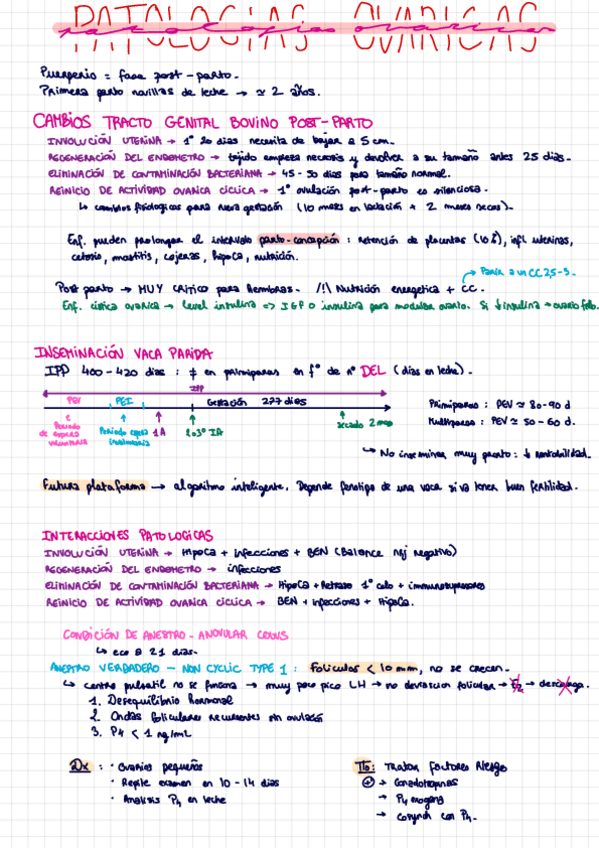 PATOLOGIAS OVARICAS
patologias ovaricas
Puerperio = fase post-parto.
Primera parto novillas de leche → ≃ 2 años.
CAMBIOS TRACTO GENITAL BOVINO POST-PARTO
INVOLUCIÓN UTERINA → 1º 20 dias necesita de bajar a 5 cm.
REGENERACIÓN DEL ENDOMETRO → tejido empieza necrosis y devolver a su tamaño antes 25 dias.
ELIMINACIÓN DE CONTAMINACIÓN BACTERIANA → 45-50 dias para tamaño normal.
REINICIO DE ACTIVIDAD OVARICA CÍCLICA → 1º ovulación post-parto es silenciosa.
↳ cambios fisiologicas para nueva gestación (10 meses en lactación + 2 meses secas).
Enf. pueden prolongar el intervalo parto-concepción : retención de placentas (10%), infl uterinas,
cetosis, mastitis, cojeras, hipoca, nutrición.
Parir a un CC 2,5-3.
Post parto → MUY CRITICO para hembras. /!\ Nutrición energetica + CC.
Enf. cistica ovarica → level insulina => IGF o insulina para modular ovario. Si ↓ insulina → ovario folic.
INSEMINACIÓN VACA PARIDA
IPP 400-420 dias : ≠ en primiparas en f° de nº DEL (dias en leche).
IPP
PEV PEI Gestación 277 dias
Periodo de espera voluntaria
Periodo espera involuntaria
1 IA
2o3º IA
secado 2 meses
Primiparas : PEV ≃ 80-90 d
Multiparas : PEV ≃ 50-60 d.
↳ No inseminar muy pronto : ↓ rentabilidad.
Futura plataforma → algoritmo inteligente. Depende fenotipo de una vaca si va tener buen fertilidad.
INTERACCIONES PATOLOGICAS
INVOLUCIÓN UTERINA → Hipoca + infecciones + BEN (Balance nrj negativo)
REGENERACIÓN DEL ENDOMETRO → infecciones
ELIMINACIÓN DE CONTAMINACIÓN BACTERIANA → Hipoca + Retraso 1º celo + inmunosupresores
REINICIO DE ACTIVIDAD OVARICA CÍCLICA → BEN + infecciones + Hipoca.
CONDICIÓN DE ANESTRO - ANOVULAR COWS
↳ eco a 21 dias.
ANESTRO VERDADERO - NON CYCLIC TYPE 1 : Foliculos < 10 mm, no se crecen.
↳ centro pulsatil no se funciona → muy poco pico LH → no desviacion folicular → E2 → descarga.
1. Desequilibrio hormonal
2. Ondas foliculares recurrentes sin ovulación
3. P4 < 1 ng/mL
Dx : · Ovarios pequeños
· Repite examen en 10-14 dias
· Analisis P4 en leche
Tto: Tratar factores Riesgo
⊕ → Gonadotropinas
→ P4 exogena
→ Cosynch con P4.